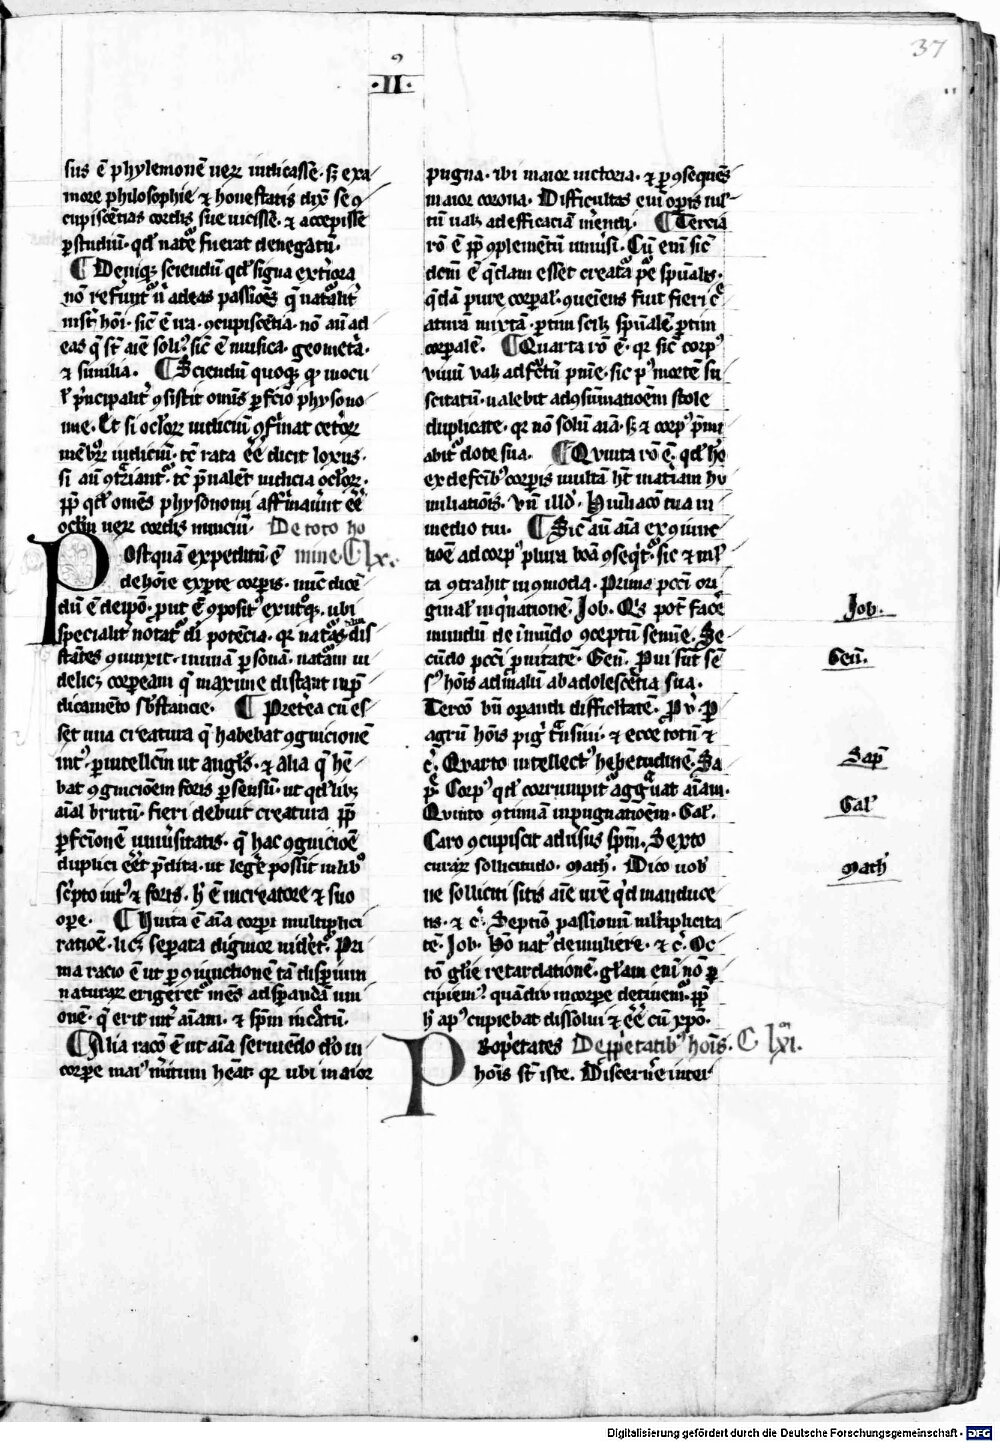 37
·II·
sus ē phylemonē uerꝝ iudicassē· sꝫ exa
more philosophie ⁊ honestatis dix̄ se ꝯ
cupiscētias cordis sue uicissē· ⁊ accepissē
ꝑ studiū· qd̓ natᵉ fuerat denegatū·
¶ Deniqꝫ sciendū qd̓ signa ext̓iora
nō referūtᷣ n̄ ad eas passiōes q̄ naturalit̓
inst̄ hoī· sic̄ ē ira· ꝯcupiscētia· nō aū ad
eas q̄ st̄ aīe soliꝰ sic̄ ē musica· geomet̓a·
⁊ similia. ¶ Sciendū quoqꝫ qꝫ in ocu
l̓ pͥncipalit̓ ꝯsistit omīs ꝑfcīo physono
mie· Et si oclōꝝ iudiciū ꝯfirmat cet̓oꝝ
mēbꝝ iudiciū· tc̄ rata eē dicit loxus·
si aū ꝯtͥriantᷣ· tc̄ p̄ualent iudicia oclōꝝ·
ꝓp̄ qd̓ omēs physonomi affirmauer̄t eē
oclm̄ uerꝝ cordis nunciū· De toto ho
Postquā expeditū ē mine· C lx.
de hoīe ex ꝑte corpis· nūc dicē
dū ē de ip̄o· put ē ꝯpositꝰ ex utͦqꝫ· ubi
specialit̓ notatᷣ di potēcia· qr naturas dis
stātes ꝯiunxit· in unā ꝑsonā· naturam ui
delicꝫ corpeam q̄ maxime distant in p̄
dicamēto sb̓stancie· ¶ Pret̓ea cū es
set una creatura q̄ habebat ꝯgnicionē
intꝰ ꝑ intellcm̄ ut anglꝰs· ⁊ alia q̄ hē
bat ꝯgnicōem foris ꝑ sensū· ut qd̓libꝫ
aīal brutū· fieri debuit creatura ꝓp̄
ꝑfcīonē uniūsitatis· q̄ hac ꝯgnicōe
duplici eēt p̄dita· ut legēt possit in libͦ
sc̓pto intꝰ ⁊ foris· h̓ ē in creatore ⁊ suo
ope· ¶ Unita ē aīa corpi multiplici
ratioē· licꝫ sepata dignior uidetᷣ· Pri
ma racio ē ut ꝑ ꝯiunctionē tā disparium
naturaꝝ erigeretᷣ mēs ad spandā uni
onē· q̄ erit int̓ aīam· ⁊ spm̄ increatū·
¶ Alia racō ē ut aīa seruiēdo dō in
corpe maiꝰ meritum heat· qr ubi maior
pugna· ibi maior uictoria· ⁊ ꝑ ꝯsequēs
maior corona· Difficultas eni opis mul
tū ualꝫ ad efficaciā merendi· ¶ Tercia
rō ē ꝓp̄ ꝯplemētū uniūsi· Cū eni sic̄
dcm̄ ē q̄dam esset creatura pure spūalis·
q̄dā pure corpal· ꝯueniens fuit fieri cre
aturā mixtā· partim scilꝫ spūalē ꝑtim
corpalē· ¶ Quarta rō ē· qr sic̄ corpꝰ
uiuū ualꝫ ad fc̄tū pniē· sic pꝰ mortē su
scitatū· ualebit ad ꝯsūmatioēm stole
duplicate· qr nō solū aīa· sꝫ ⁊ corpꝰ p̄mi
abitᷣ dote sua· ¶ Quinta rō ē· qd̓ hō
ex defcībꝰ corpis multā hꝫ materiam hu
miliatiōis· vn̄ illd̓· Humiliacō tua in
medio tui· ¶ Sic̄ aū aīa ex ꝯiunc
tioē ad corpꝰ plura boā ꝯseqͥt̓· sic ⁊ mul
ta ꝯtrahit incōmoda· Primo pcc̄i ori
ginal̓ inqͥnationē· Job· Qͥs potꝫ facē
mundū de inmūdo ꝯceptū semīe· Se
cūdo pcc̄i pͥnitatē· Gen̄· Pni sūt sē
sꝰ hoīs ad malū ab adolescētia sua·
Tercō bn̄ operandi difficltatē· Pv̓· P
agrū hoīs pigͥ trāsiui· ⁊ ecce totū ⁊
c̓· Quarto intellectꝰ hebetudinē· Sa
p̄· Corpꝰ qd̓ corrumpit̓ aggͣuat aīam·
Quinto ꝯtinuā inpugnatioēm· Gal̓·
Caro ꝯcupiscit adūsus spm̄· Sexto
curaꝝ sollicitudo· Math̓· Dico uob̓
ne solliciti sitis aīe ur̄e qͥd manduce
tis· ⁊ c̓· Septīo passionū multiplicita
tē· Job· Hō natꝰ de muliere· ⁊ c̓· Oc
tō glīe retardationē· glam eni nō ꝑ
cipiemꝰ quādiu in corpe detinemᷣ· ꝓp̄
h̓ apꝰ cupiebat dissolui ⁊ eē cū xpō·
Propͥetates De ꝓpͥetatibꝰ hoīs· C lxi.
hoīs st̄ iste· Discerne inter
Job·
Gen̄·
Sap̄
Gal̓
Math̓
Digitalisierung gefördert durch die Deutsche Forschungsgemeinschaft - DFG